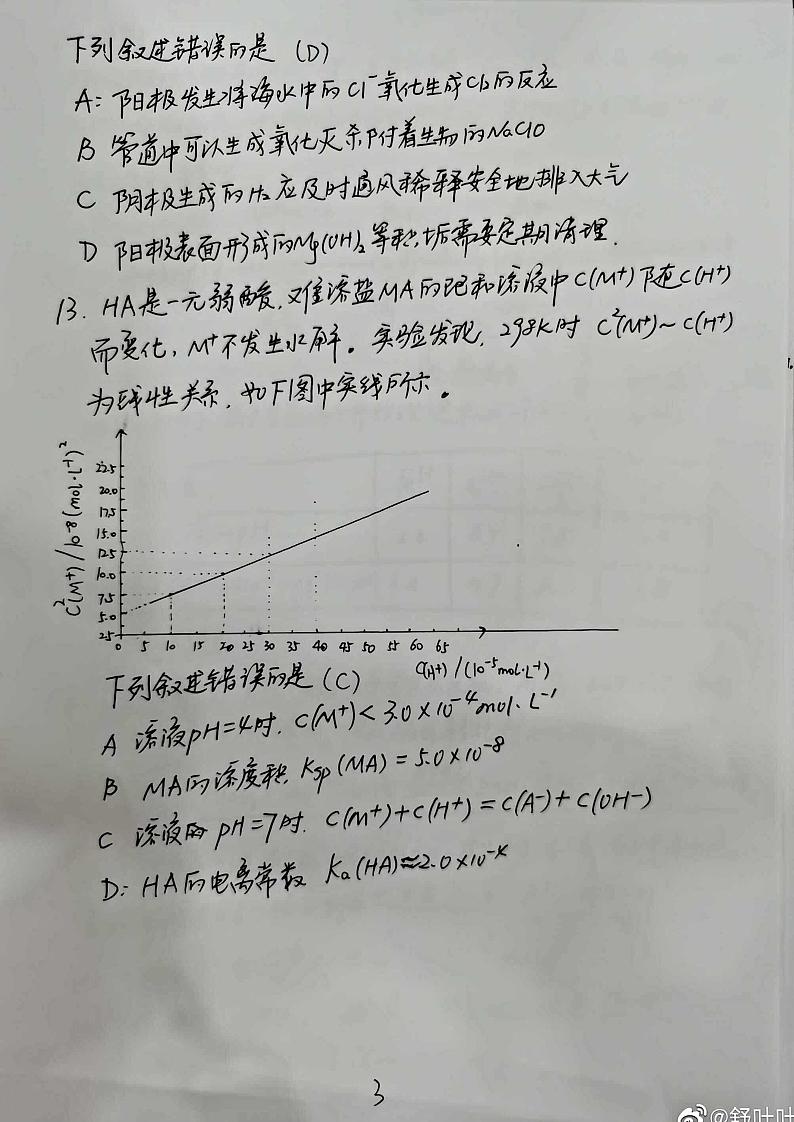 下列叙述错误的是 (D)
A: 阳极发生将海水中的Cl⁻氧化生成Cl₂的反应
B 管道中可以生成氧化灭杀附着生物的NaClO
C 阴极生成的H₂应及时通风稀释安全地排入大气
D 阳极表面形成的Mg(OH)₂等积垢需要定期清理.
13. HA是一元弱酸,难溶盐MA的饱和溶液中C(M⁺)随C(H⁺)
而变化,M⁺不发生水解。实验发现,298K时 C²(M⁺)~C(H⁺)
为线性关系,如下图中实线所示。
C²(M⁺)/10⁻⁸(mol·L⁻¹)²
22.5
20.0
17.5
15.0
12.5
10.0
7.5
5.0
2.5
0 5 10 15 20 25 30 35 40 45 50 55 60 65
C(H⁺)/(10⁻⁵mol·L⁻¹)
下列叙述错误的是(C)
A 溶液pH=4时.C(M⁺)<3.0×10⁻⁴mol·L⁻¹
B MA的溶度积Ksp(MA)=5.0×10⁻⁸
C 溶液的pH=7时.C(M⁺)+C(H⁺)=C(A⁻)+C(OH⁻)
D: HA的电离常数 Ka(HA)≈2.0×10⁻⁴
3
@舒叶叶